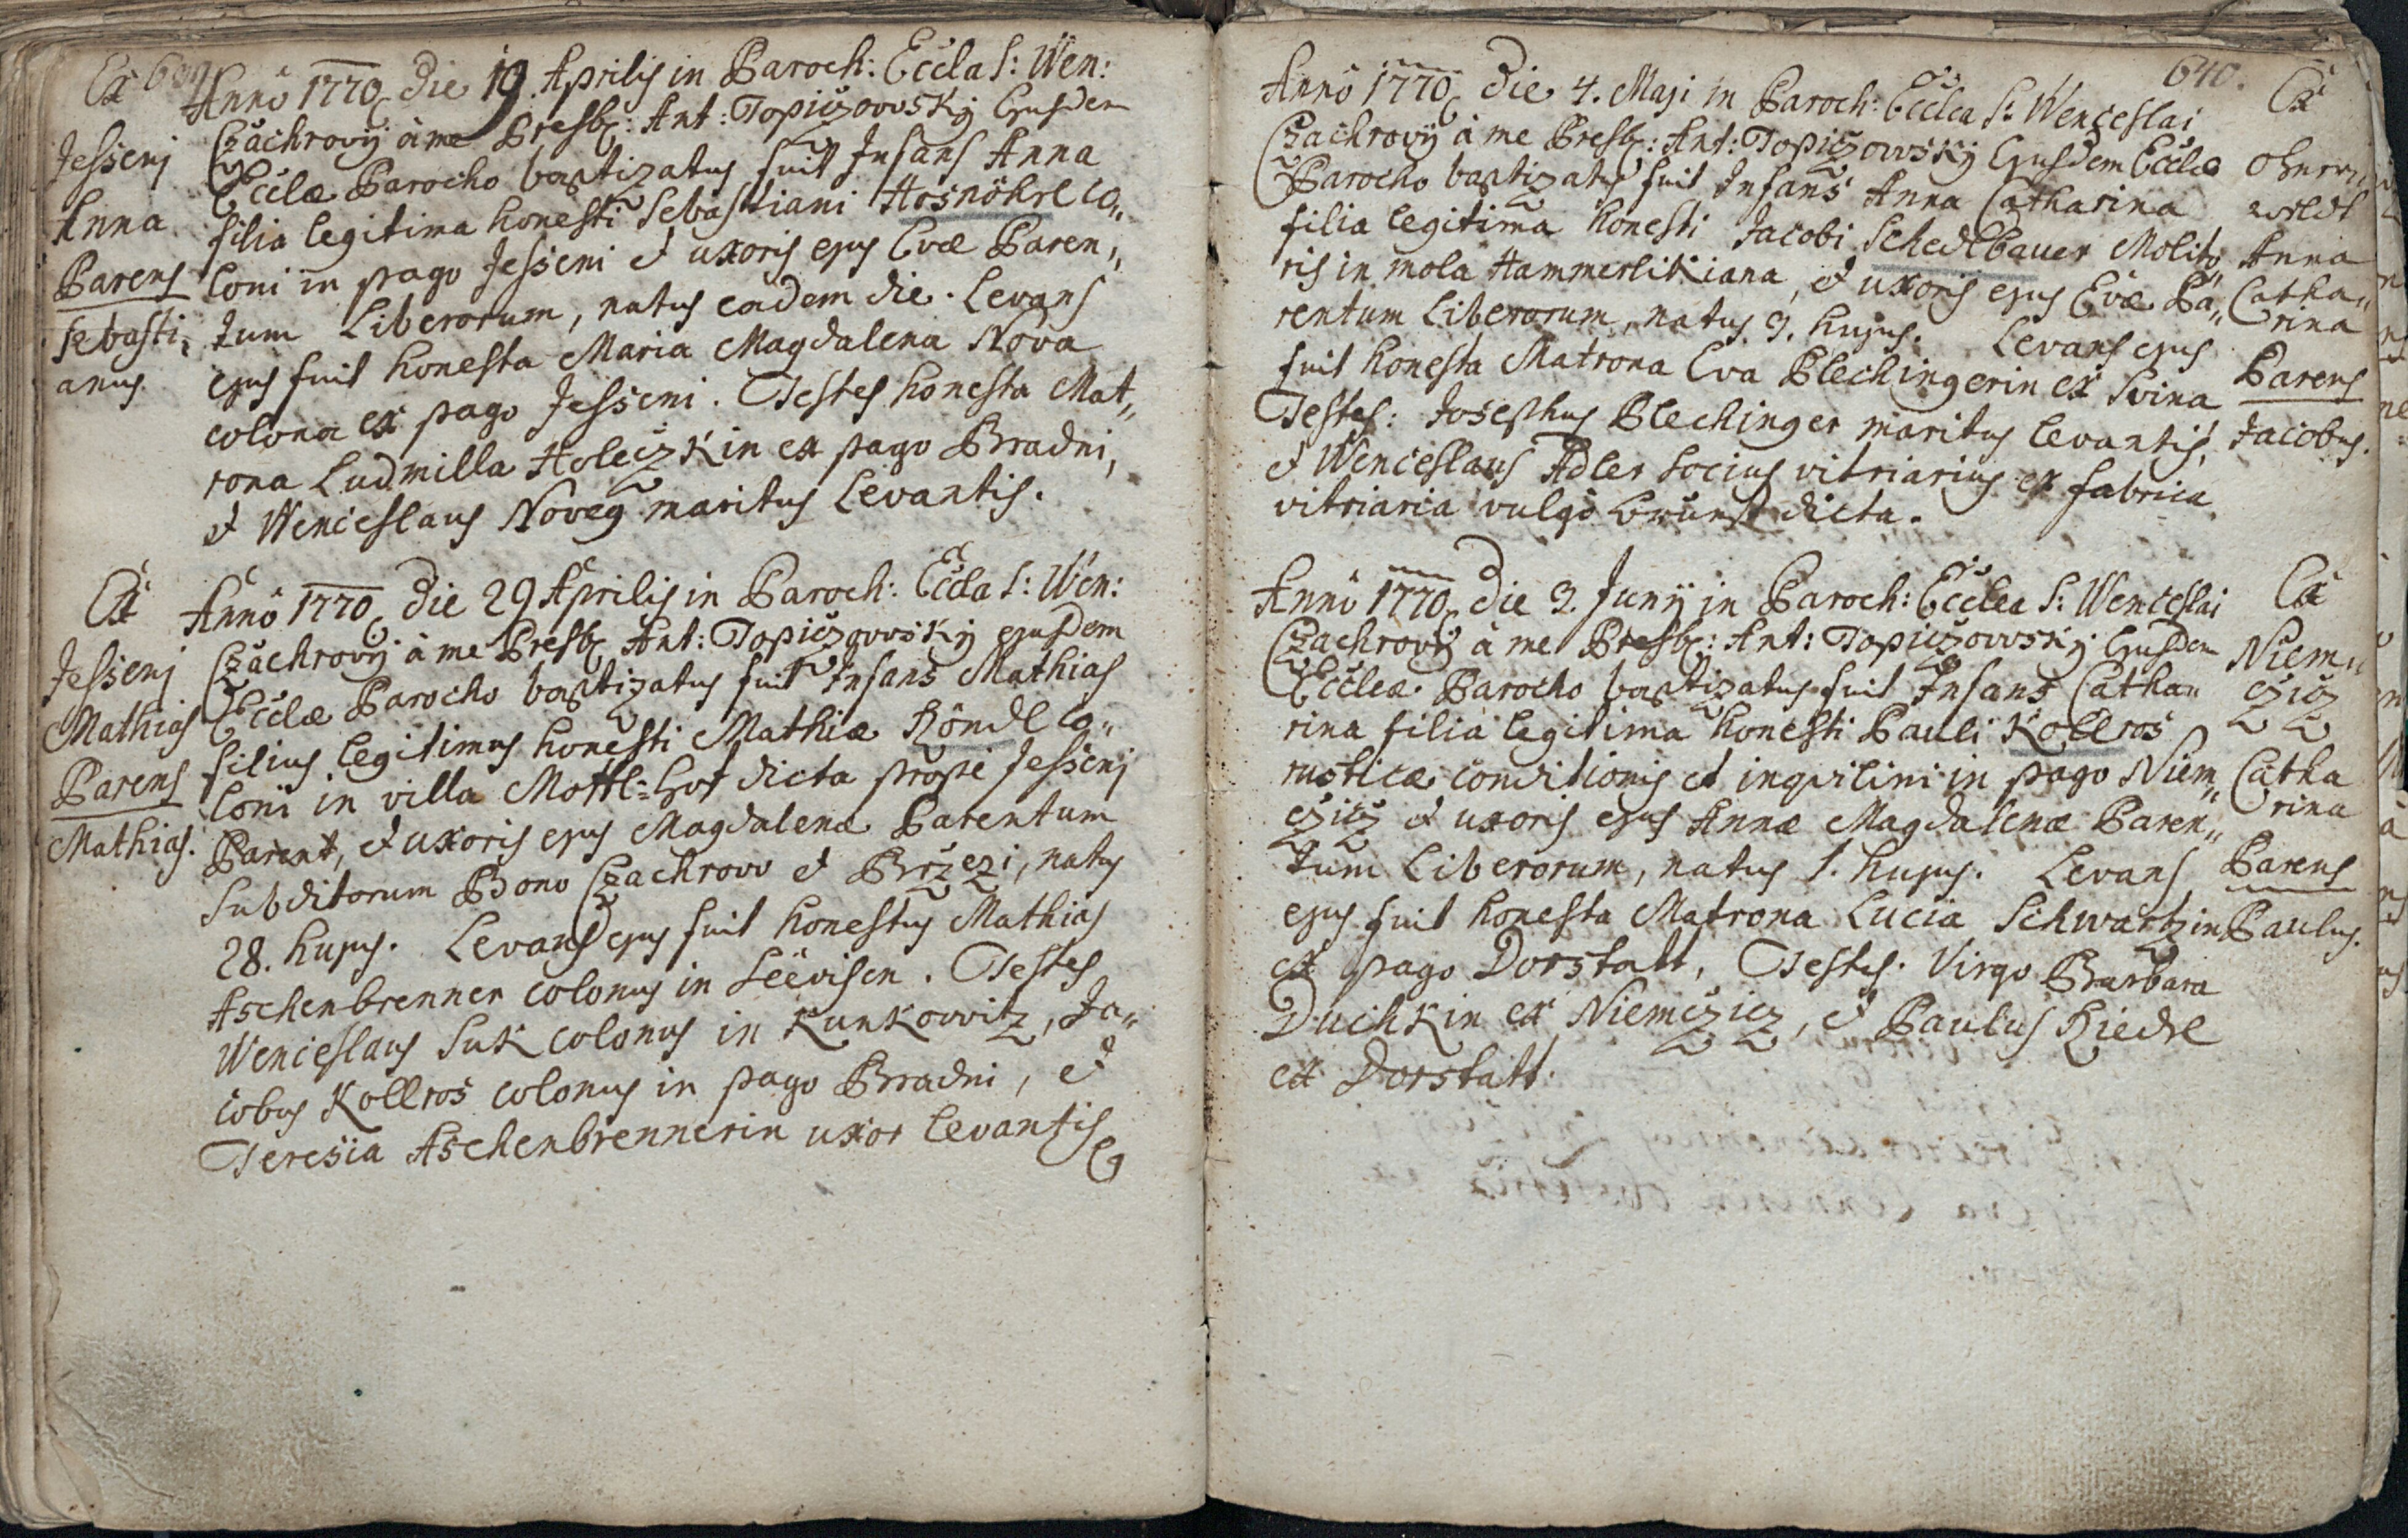 609
Ex
Jesseni
Anna
Parens
Sebasti„
anus.
Anno 1770 die 19. Aprilis in Paroch: Eccla S: Wen:
Czachrovÿ à me Presb: Ant: Topiczovvskÿ Ejusdem
Ecclæ Parocho baptizatus fuit Infans Anna
filia legitima honesti Sebastiani Hosnöhrl co„
loni in pago Jesseni et uxoris ejus Evæ Paren„
tum Liberorum, natus eadem die. Levans
ejus fuit honesta Maria Magdalena Nova
colona ex pago Jesseni. Testes honesta Mat„
rona Ludmilla Holeczkin ex pago Bradni,
et Wenceslaus Noveg maritus Levantis.
Ex
Jesseni
Mathias
Parens
Mathias.
Anno 1770 die 29 Aprilis in Paroch: Eccla S: Wen:
Czachrovÿ à me Presb Ant: Topiczovvskÿ ejusdem
Ecclæ Parocho baptizatus fuit Infans Mathias
filius legitimus honesti Mathiæ Köndl co„
loni in villa Mottl=hof dicta prope Jessenj
Parent, et uxoris ejus Magdalenæ Parentum
Subditorum Bono Czachrovv et Brzezi, natus
28. hujus. Levans ejus fuit honestus Mathias
Aschenbrenner colonus in Seëvisen. Testes
Wenceslaus Suk colonus in Kunkovvitz, Ja„
cobus Kollros colonus in pago Bradni, et
Teresia Aschenbrennerin uxor levantis
640.
Anno 1770 die 4. Maji in Paroch: Ecclea S: Wenceslai
Czachrovÿ à me Presb: Ant: Topiczovvskÿ Ejusdem Ecclæ
Parocho baptizatus fuit Infans Anna Catharina
filia legitima honesti Jacobi Schedlbauer Molito„
ris in mola Hammerlikiana, et uxoris ejus Evæ Pa„
rentum Liberorum, natus 3. hujus. Levans ejus
fuit honesta Matrona Eva Blechingerin ex Svina
Testes: Josephus Blechinger maritus levantis,
et Wenceslaus Adler socius vitriarius ex fabrica
vitriaria vulgò brunst dicta.
Ex
Anna
Catha„
rina
Parens
Jacobus.
Anno 1770 die 3. Junÿ in Paroch: Ecclea S: Wenceslai
Czachrovÿ à me Presb: Ant: Topiczovvskÿ Ejusdem
Eccleæ Parocho baptizatus fuit Infans Catha„
rina filia legitima honesti Pauli Kollros
rusticæ conditionis et inqvilini in pago Niem„
czicz et uxoris ejus Annæ Magdalenæ Paren„
tum Liberorum, natus 1. hujus. Levans
ejus fuit honesta Matrona Lucia Schwartzin
ex pago Dorstatt, Testes. Virgo Barbara
Duchkin ex Niemczicz, et Paulus Riedl
ex Dorstatt.
Ex
Niem„
czicz
Catha
rina
Parens
Paulus.